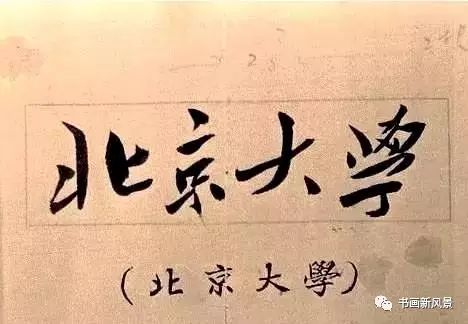 北京大學
(北京大學)
书画新风景